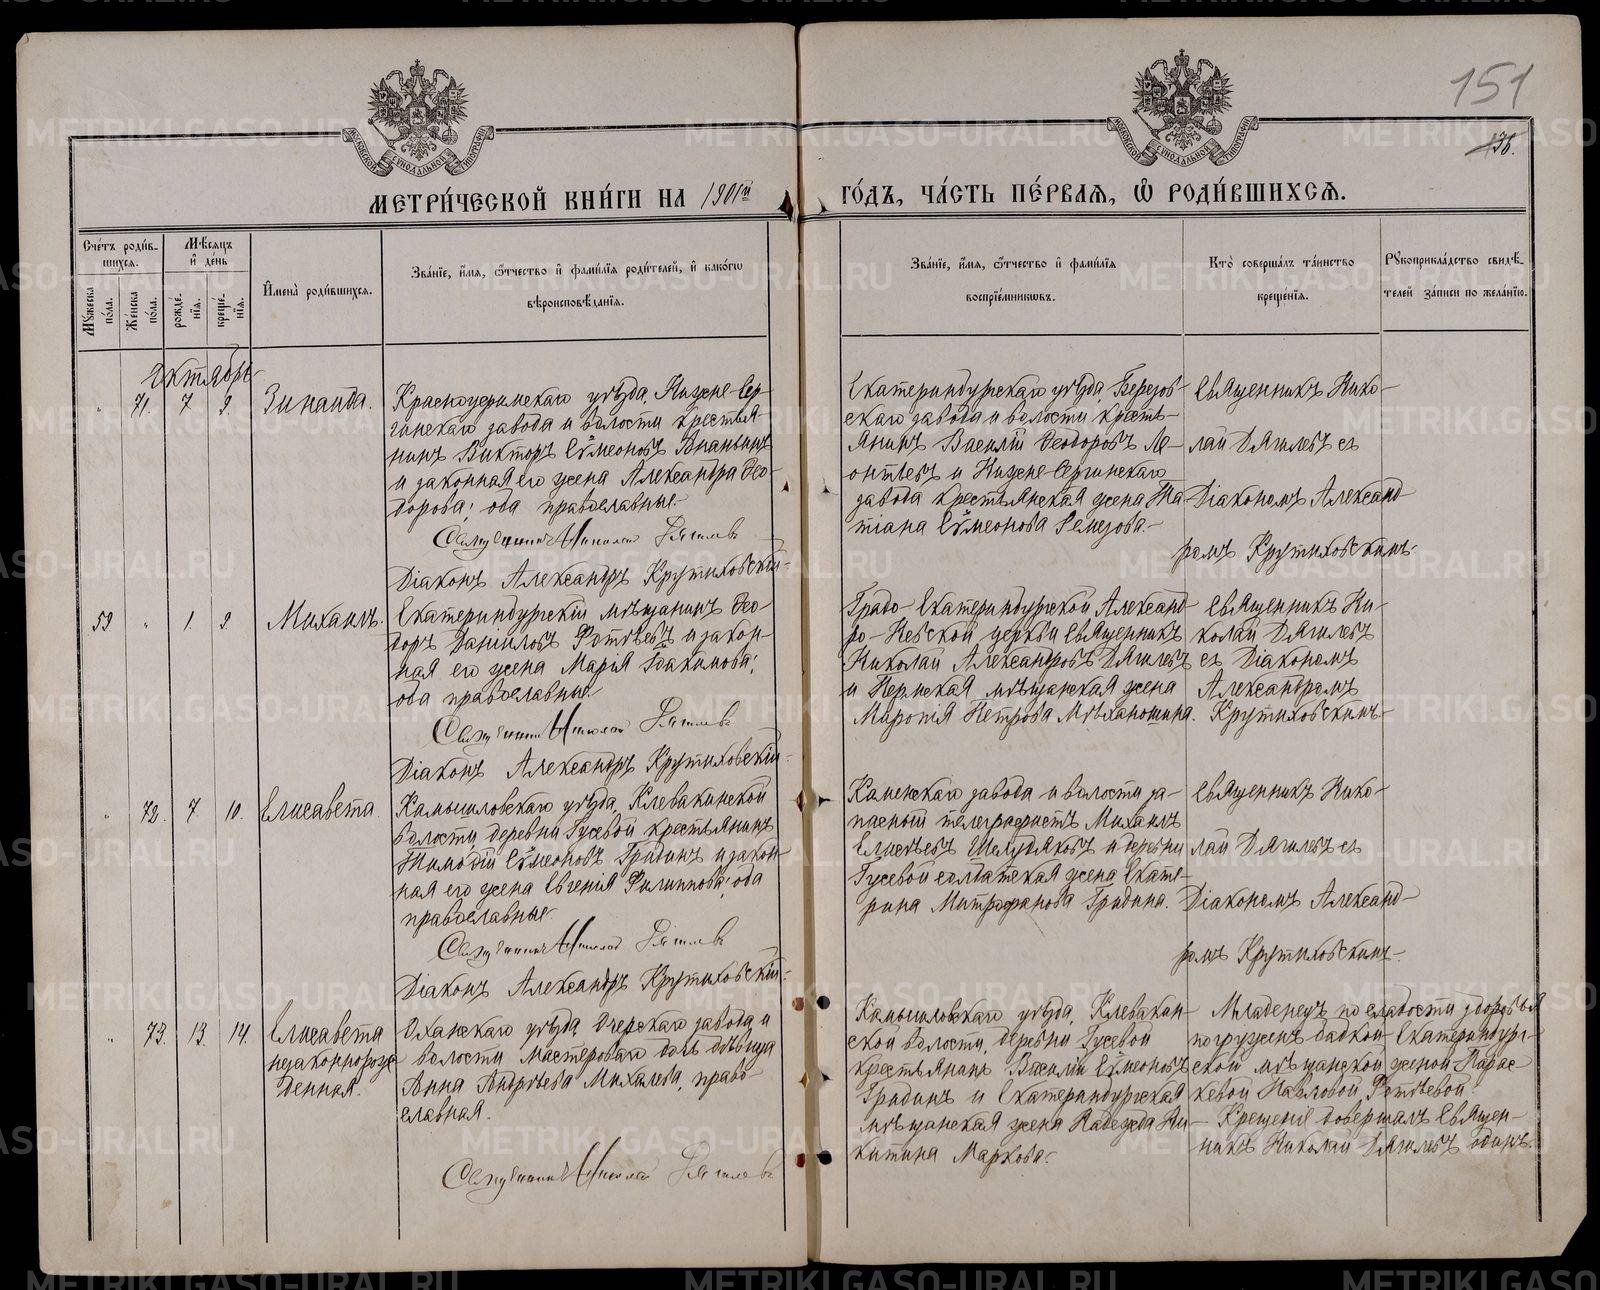 151
136.
МОСКОВСКОЙ СУНОДАЛЬНОЙ ТИПОГРАФІИ
МОСКОВСКОЙ СУНОДАЛЬНОЙ ТИПОГРАФІИ
МЕТРИ́ЧЕСКОЙ КНИ́ГИ НА 1901й ГО́ДЪ, ЧА́СТЬ ПЕ́РВАѦ, Ѿ РОДИ́ВШИХСѦ.
Сче́тъ роди́в-
шихся.
Мѣ́сяцъ
и҆ де́нь
Мꙋжеска по́ла.
Же́нска по́ла.
рожде́-
нїѧ.
креще́-
нїѧ.
И҆мена̀ роди́вшихся.
Зва́нїе, и҆́мѧ, ѻ҆́тчество и҆ фами́лїѧ роди́телей, и҆ како́гѡ
вѣроисповѣ́данїѧ.
Зва́нїе, и҆́мѧ, ѻ҆́тчество и҆ фами́лїѧ
воспрїе́мникѡвъ.
Кто̀ соверша́лъ та́инство
креще́нїѧ.
Рꙋкоприкла́дство свидѣ́-
телей за́писи по жела́нїю.
Октябрь
" 71. 7 9. Зинаида.
Красноуфимскаго уѣзда, Нижне-Сер-
гинскаго завода и волости крестья-
нинъ Викторъ Сѵмеоновъ Ананьинъ
и законная его жена Александра Ѳео-
дорова; оба православные.
Священникъ Николай Дягилевъ
Діаконъ Александръ Крутиховскій.
Екатеринбургскаго уѣзда, Березов-
скаго завода и волости кресть-
янинъ Василій Ѳеодоровъ Ле-
онтьевъ и Нижне-Сергинскаго
завода крестьянская жена Та-
тіана Сѵмеонова Ремезова.
Священникъ Нико-
лай Дягилевъ съ
Діакономъ Александ-
ромъ Крутиховскимъ.
59 " 1. 9. Михаилъ.
Екатеринбургскій мѣщанинъ Ѳео-
доръ Даниловъ Фотѣевъ и закон-
ная его жена Марія Іоакимова;
оба православные.
Священникъ Николай Дягилевъ
Діаконъ Александръ Крутиховскій.
Градо-Екатеринбургской Александ-
ро-Невской церкви Священникъ
Николай Александровъ Дягилевъ
и Пермская мѣщанская жена
Маропія Петрова Мѣханошина.
Священникъ Ни-
колай Дягилевъ
съ Діакономъ
Александромъ
Крутиховскимъ.
" 72. 7. 10. Елисавета.
Камышловскаго уѣзда, Клевакинской
волости, деревни Гусевой крестьянинъ
Тимоѳій Сѵмеоновъ Грядинъ и закон-
ная его жена Евгенія Филиппова; оба
православные.
Священникъ Николай Дягилевъ
Діаконъ Александръ Крутиховскій.
Каменскаго завода и волости за-
пасный телеграфистъ Михаилъ
Елисѣевъ Шелудяковъ и деревни
Гусевой солдатская жена Екате-
рина Митрофанова Грядина.
Священникъ Нико-
лай Дягилевъ съ
Діакономъ Александ-
ромъ Крутиховскимъ.
" 73. 13. 14. Елисавета
незаконнорож-
денная.
Оханскаго уѣзда, Очерскаго завода и
волости мастероваго дочь дѣвица
Анна Андреева Михалева, право-
славная.
Священникъ Николай Дягилевъ
Камышловскаго уѣзда, Клевакин-
ской волости, деревни Гусевой
крестьянинъ Василій Сѵмеоновъ
Грядинъ и Екатеринбургская
мѣщанская жена Надежда Ни-
китина Маркова.
Младенецъ по слабости здоровья
погруженъ бабкой Екатеринбург-
ской мѣщанской женой Парас-
кевой Павловой Фотѣевой.
Крещеніе довершалъ Священ-
никъ Николай Дягилевъ одинъ.